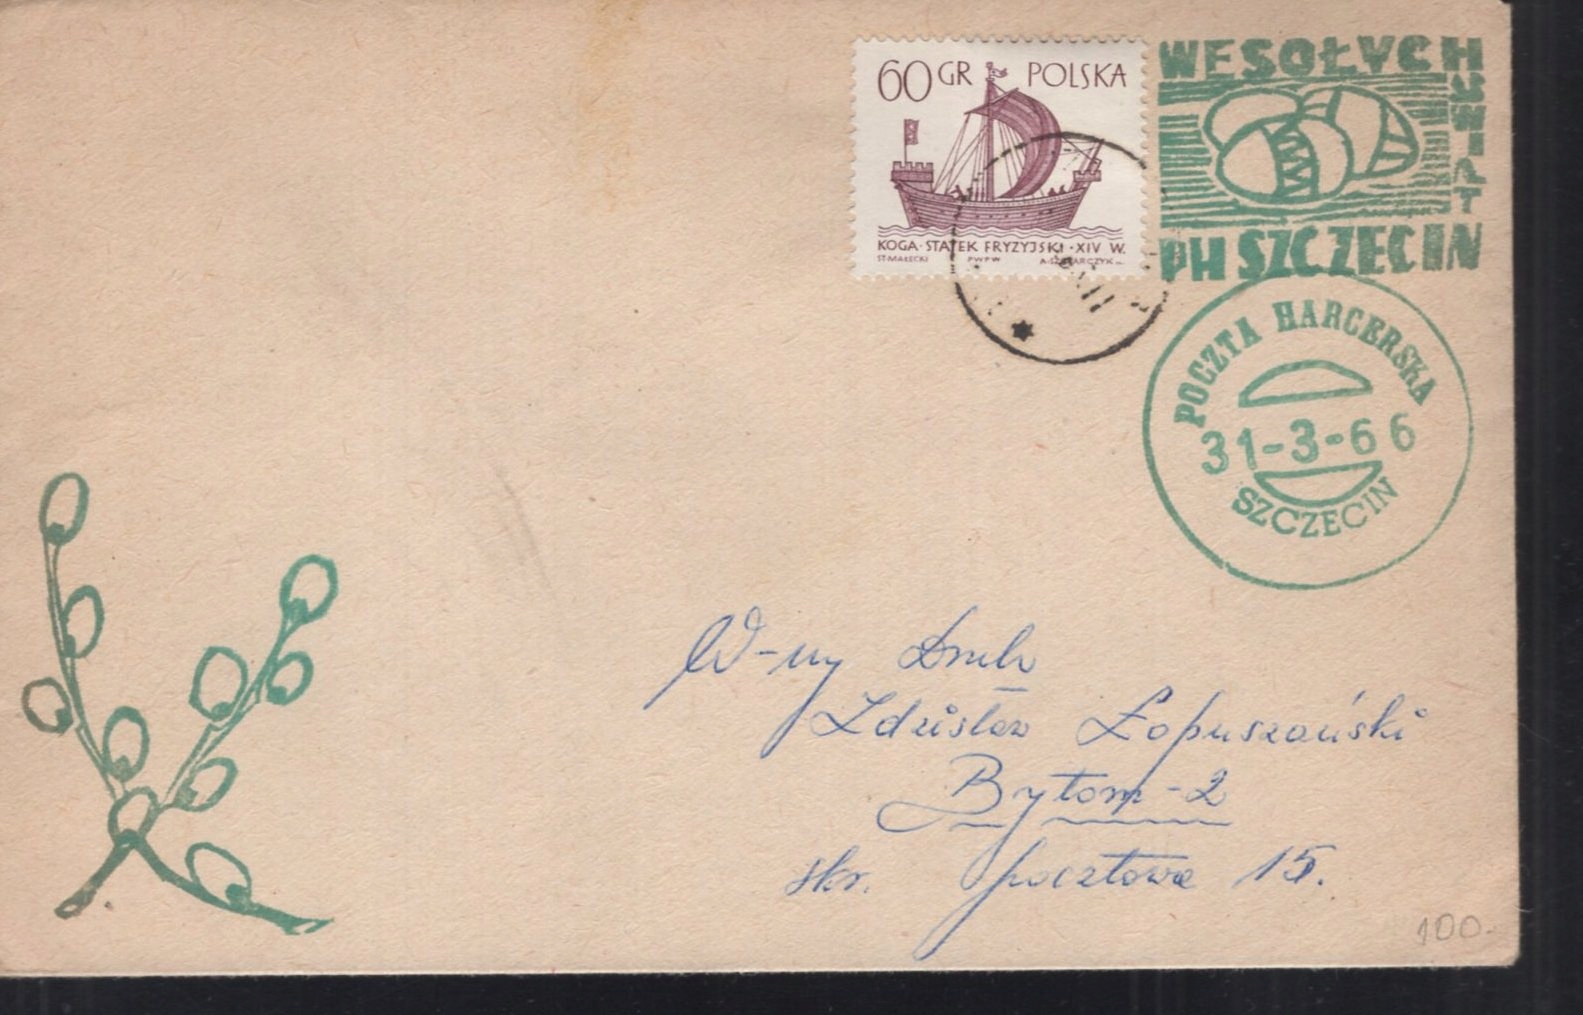 60 GR POLSKA
KOGA · STATEK FRYZYJSKI · XIV W.
ST. MAŁECKI PWPW
WESOŁYCH
ŚWIĄT
PH SZCZECIN
POCZTA HARCERSKA
31-3-66
SZCZECIN
W-ny Druh
Zdzisław Łopuszański
Bytom-2
skr. pocztowa 15.
100.-